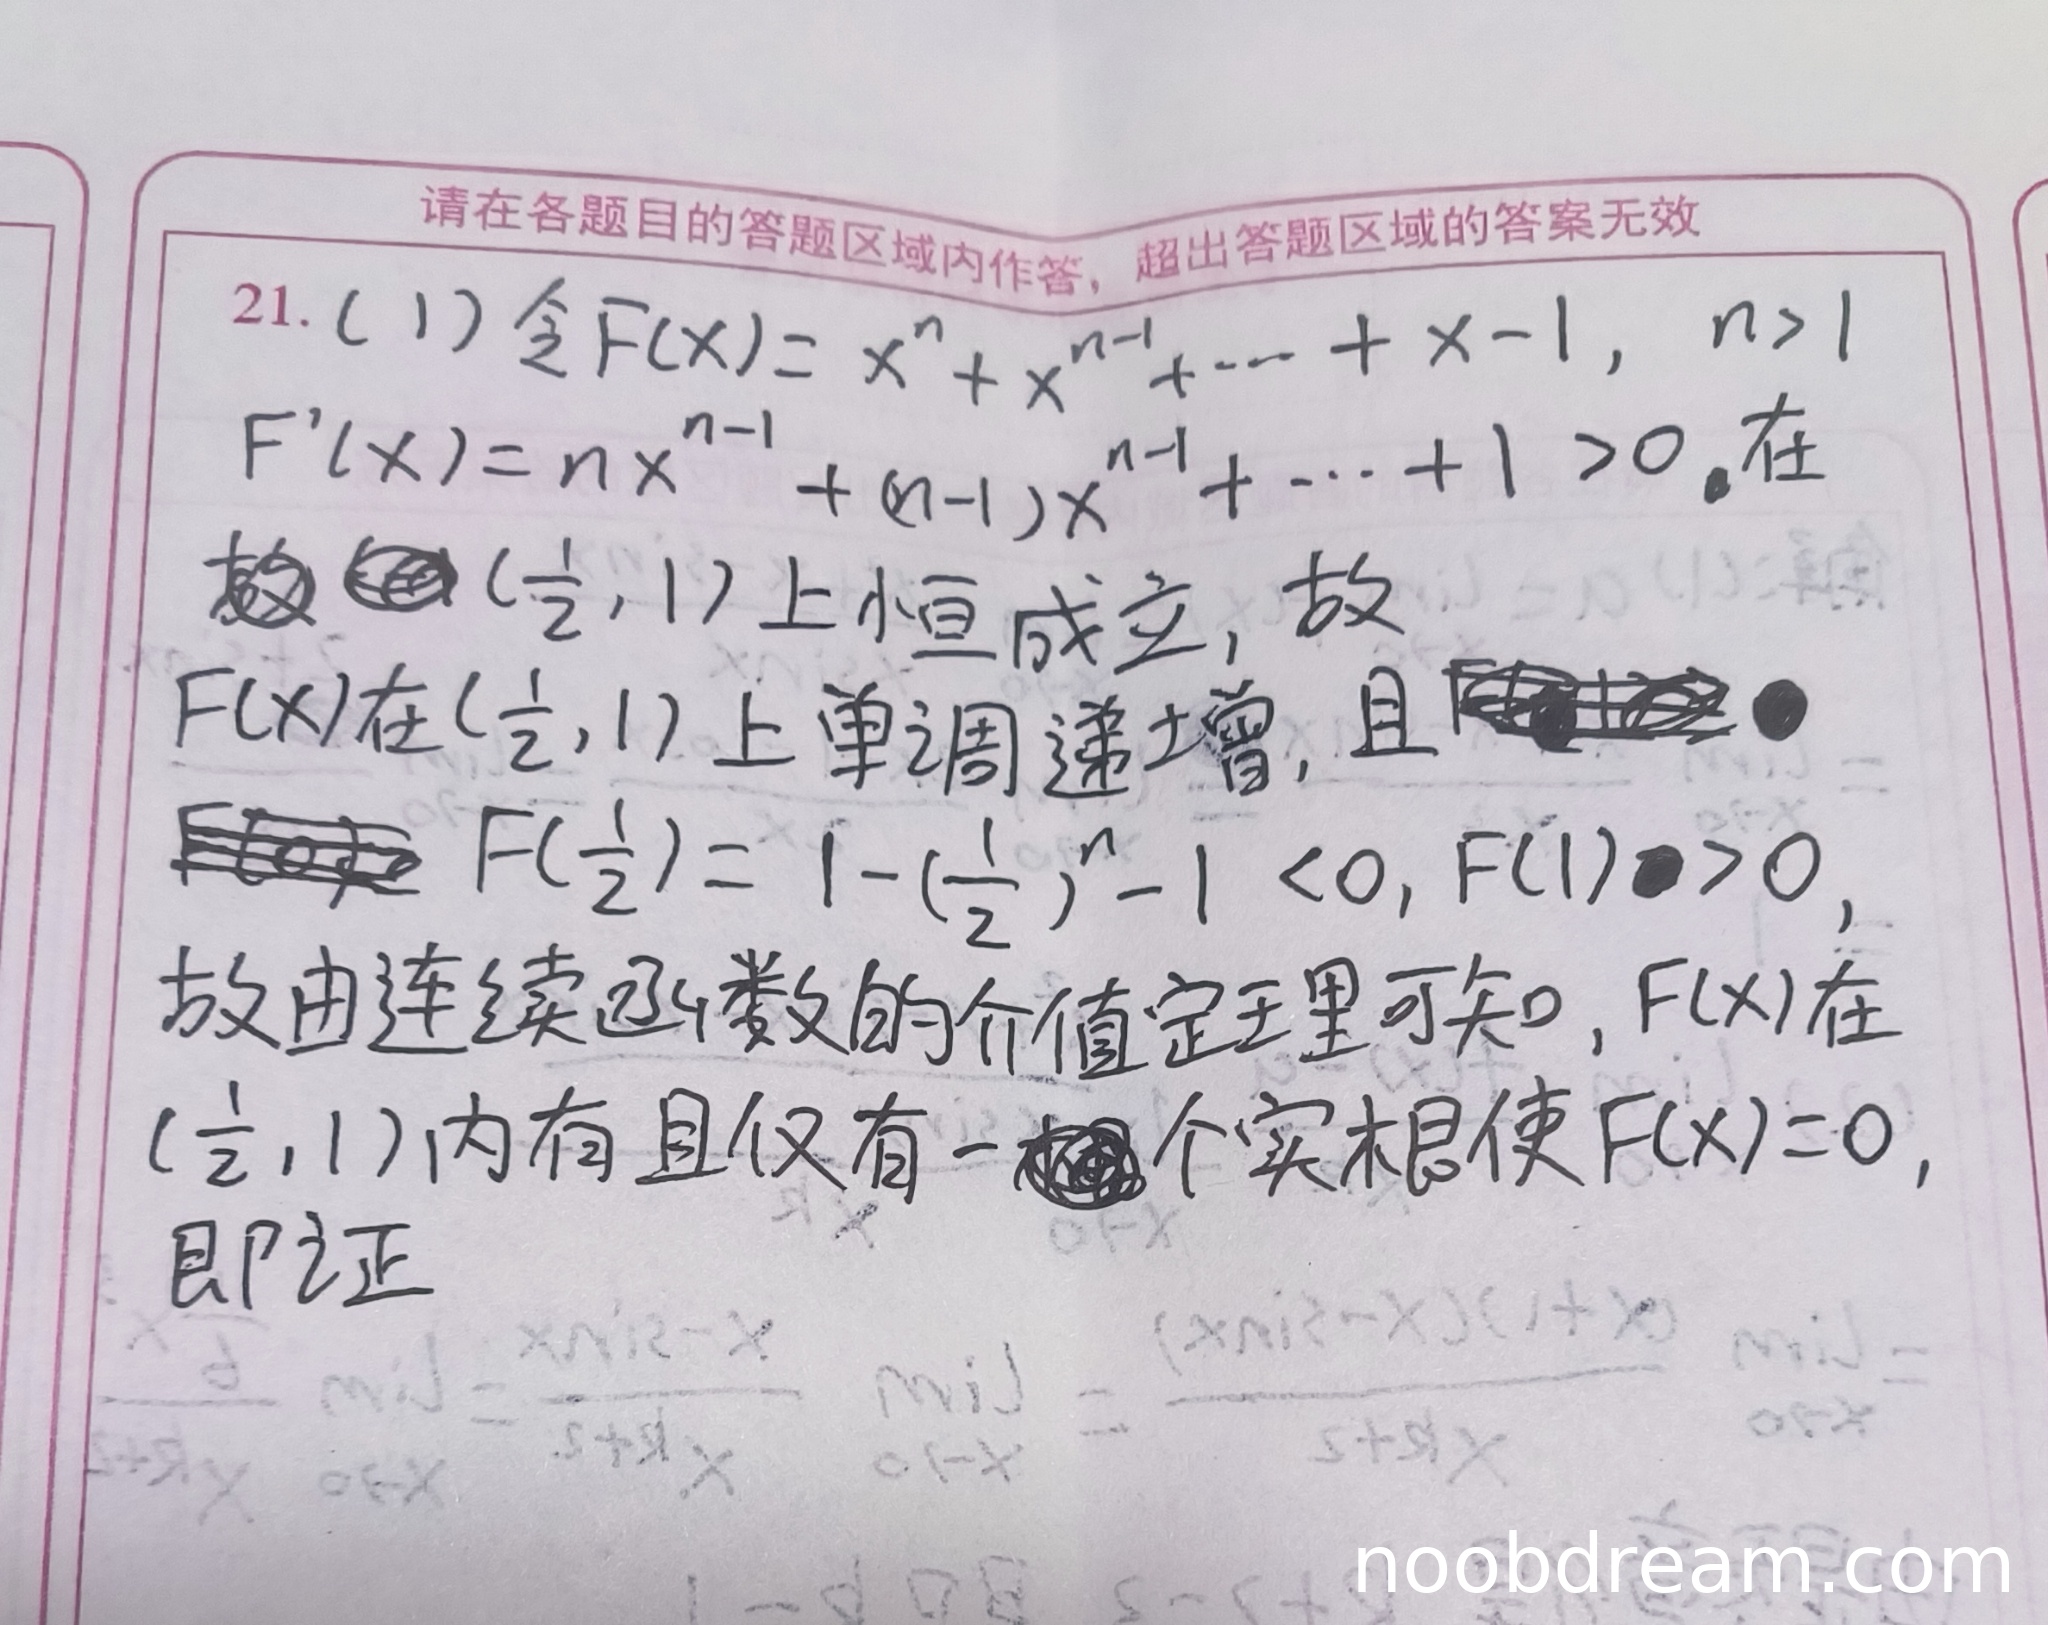 请在各题目的答题区域内作答，超出答题区域的答案无效
21. (1) 令F(x)= xⁿ + xⁿ⁻¹ + ··· + x-1, n>1
F'(x)= nxⁿ⁻¹ + (n-1)xⁿ⁻¹ + ··· +1 >0.在
(1/2,1)上恒成立,故
F(x)在(1/2,1)上单调递增,且
F(1/2)= 1-(1/2)ⁿ-1 <0, F(1)>0,
故由连续函数的介值定理可知, F(x)在
(1/2,1)内有且仅有一个实根使F(x)=0,
即证
noobdream.com